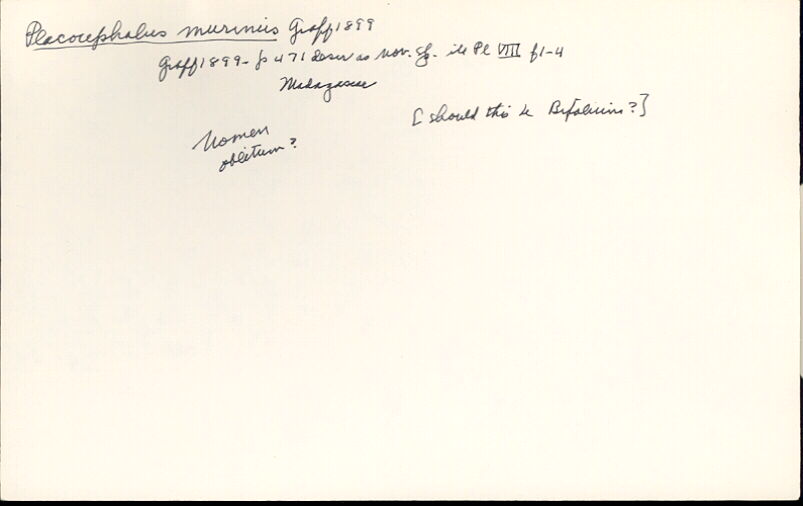 Placocephalus murinus Graff 1899
Graff 1899 - p 471 descr as nov. sp. ill Pl VIII f1-4
Madagascar
[should this be Bipalium?]
Nomen
oblitum?